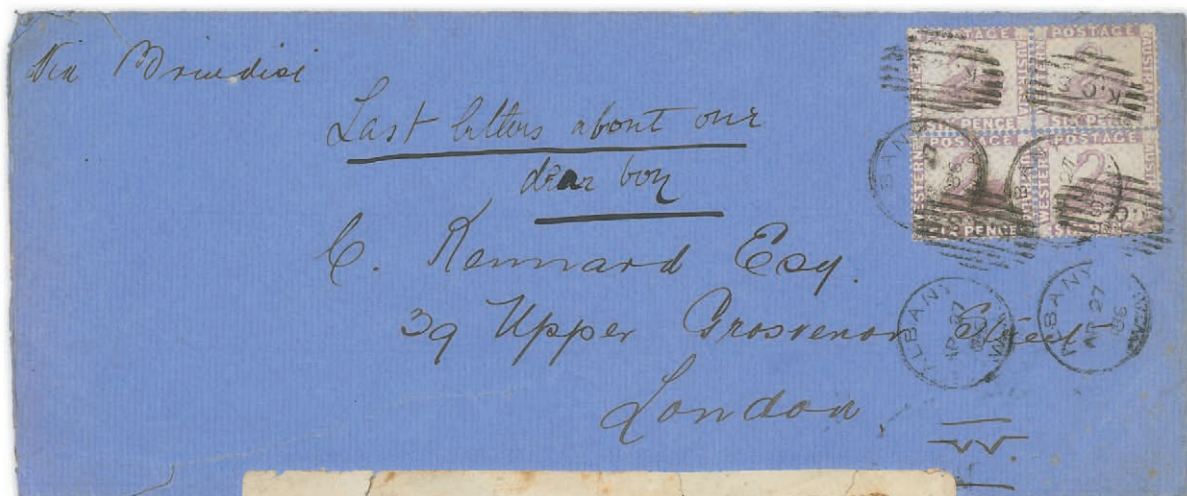 Via Brindisi
Last letters about our
dear boy
C. Kennard Esq.
39 Upper Grosvenor Street
London
W.
POSTAGE POSTAGE
WESTERN AUSTRALIA WESTERN AUSTRALIA
SIX PENCE SIX PENCE
POSTAGE POSTAGE
WESTERN WESTERN
SIX PENCE SIX PENCE
ALBANY
AP 27
86
ALBANY
AP 27
86